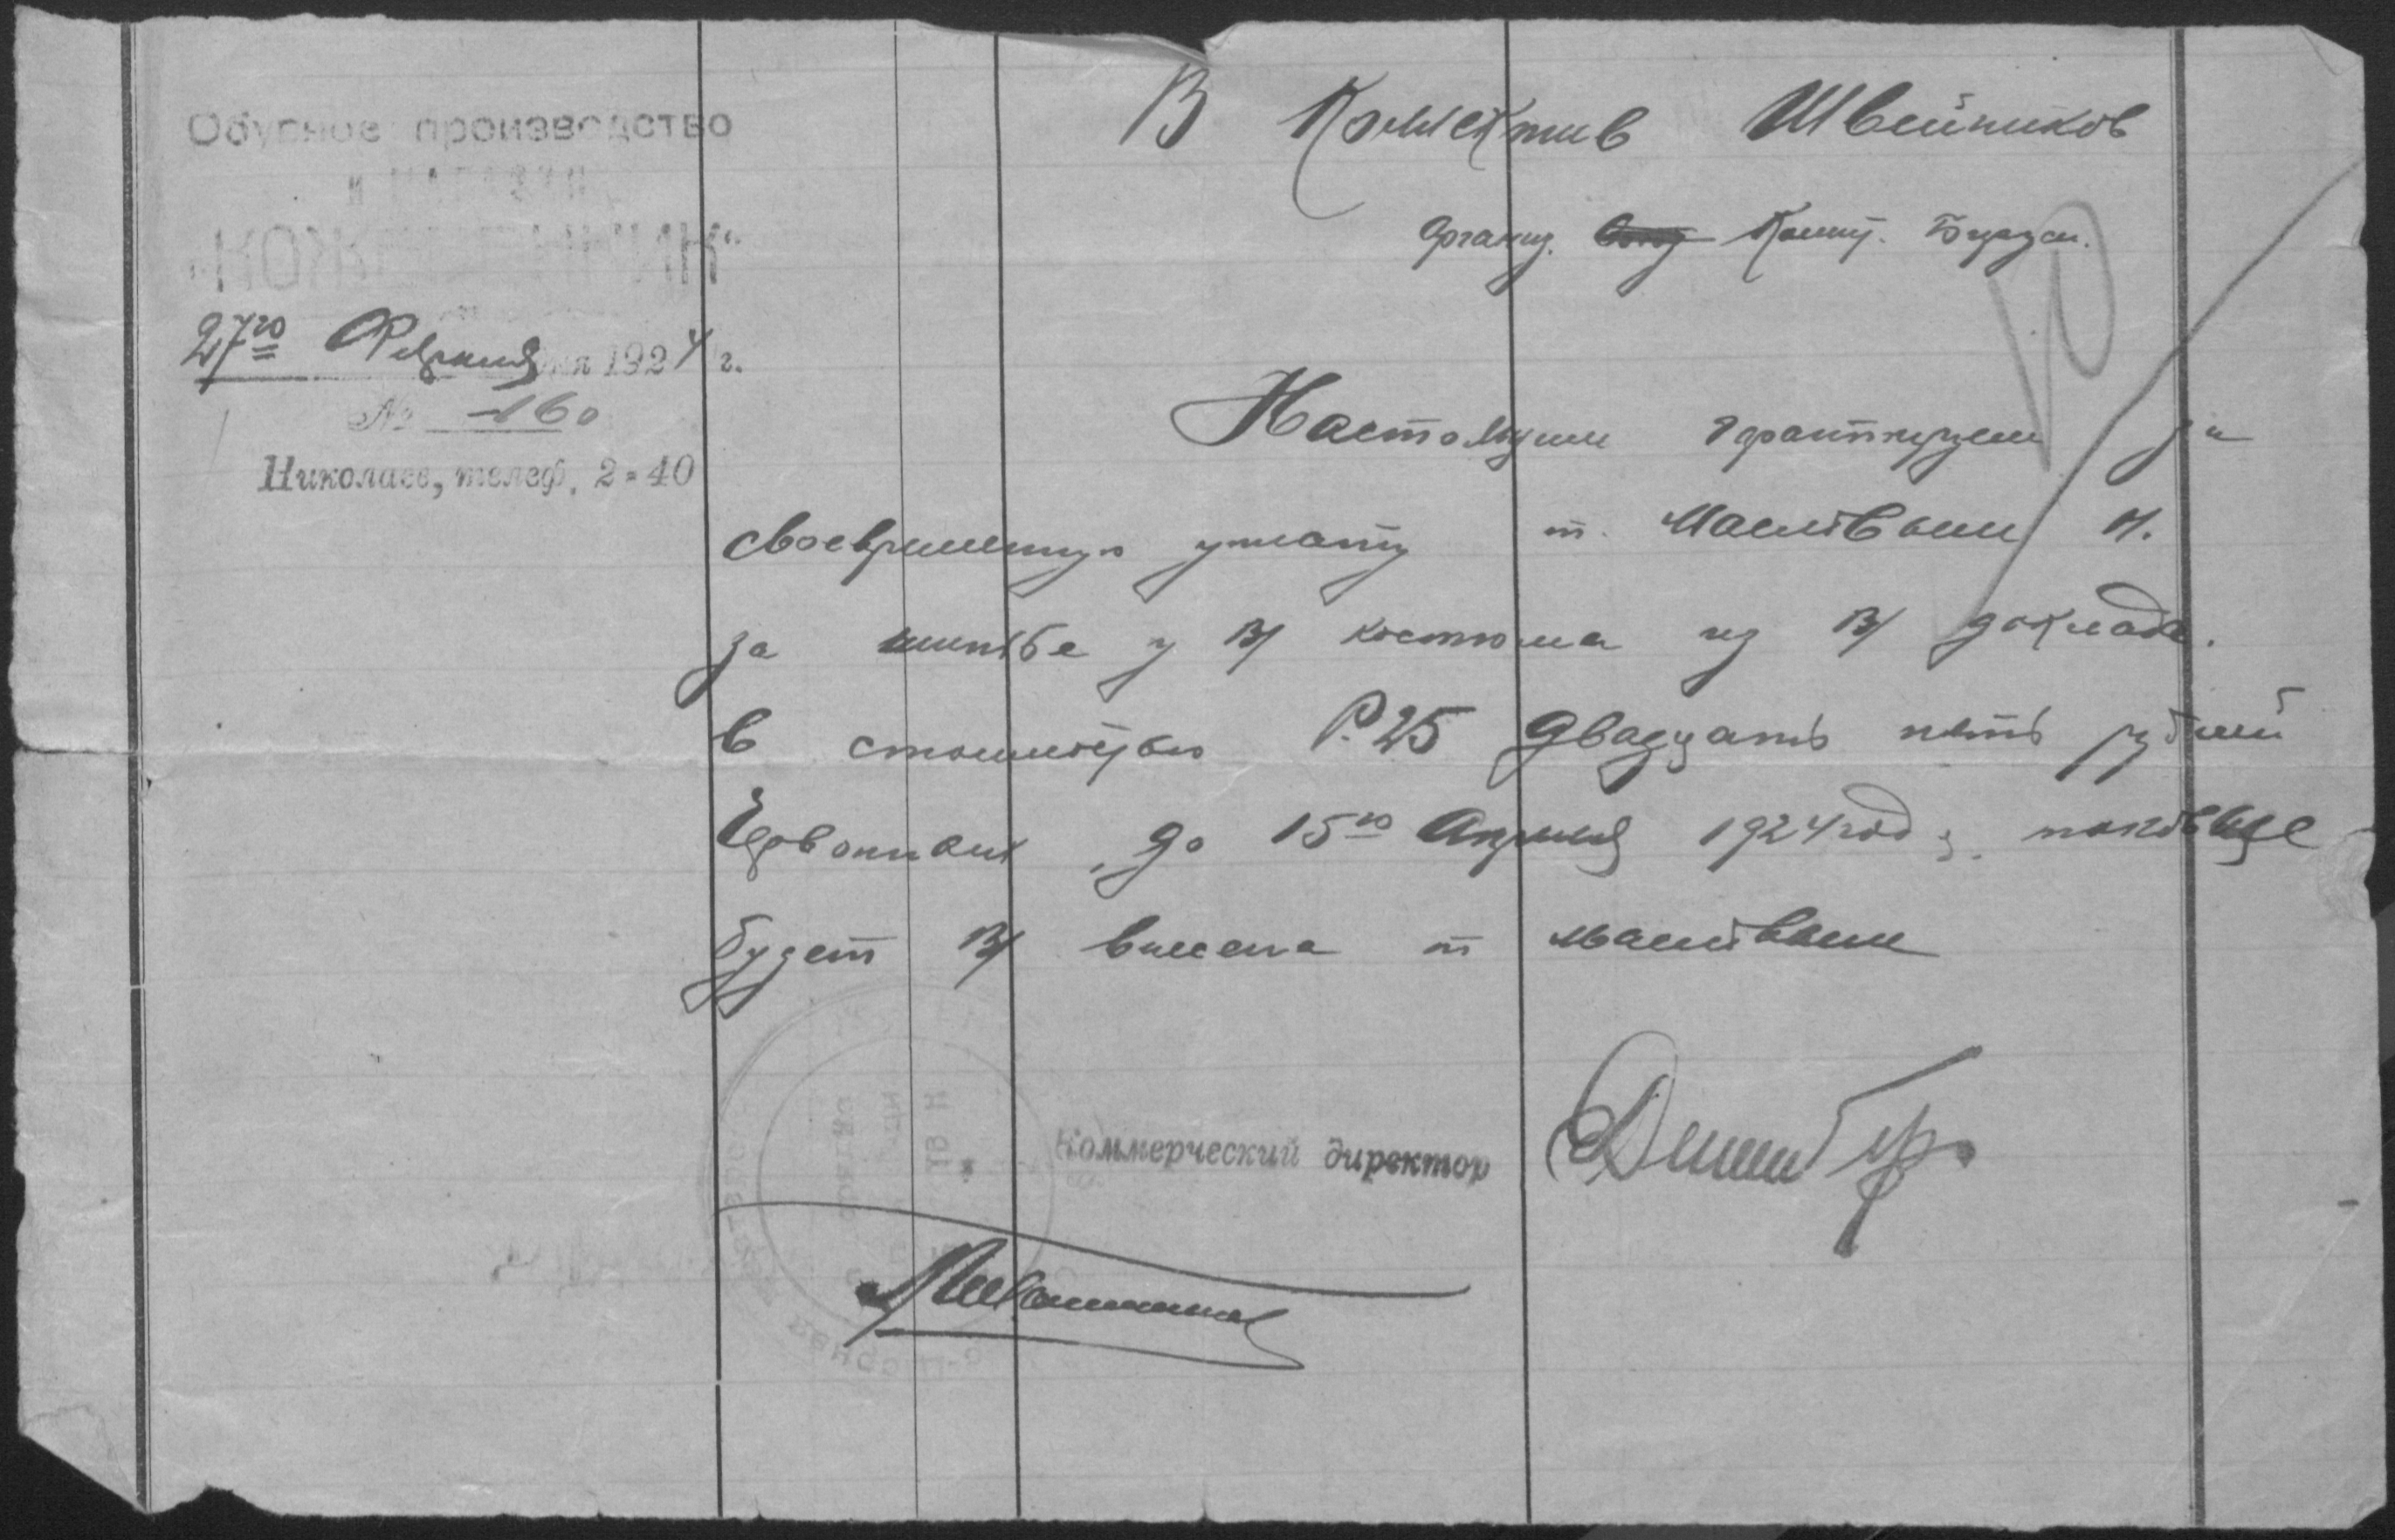 Обувное производство
и магазин
„КОЖЕВЕННИК“
27го Февраля 1924 г.
№ 160
Николаев, телеф. 2-40
В Коллектив Швейников
Организ. Комит. Безраб.
Настоящим гарантируем за
своевременную уплату т. Масловым И.
за шитье у В/ костюма из В/ доклада.
в стоимостью Р. 25 двадцать пять рублей
Червонных, до 15го Апреля 1924 года, таковые
будет В/ внесена т
Коммерческий директор